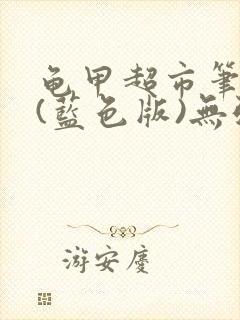 龟甲超市筆
(藍色版)無
游安慶